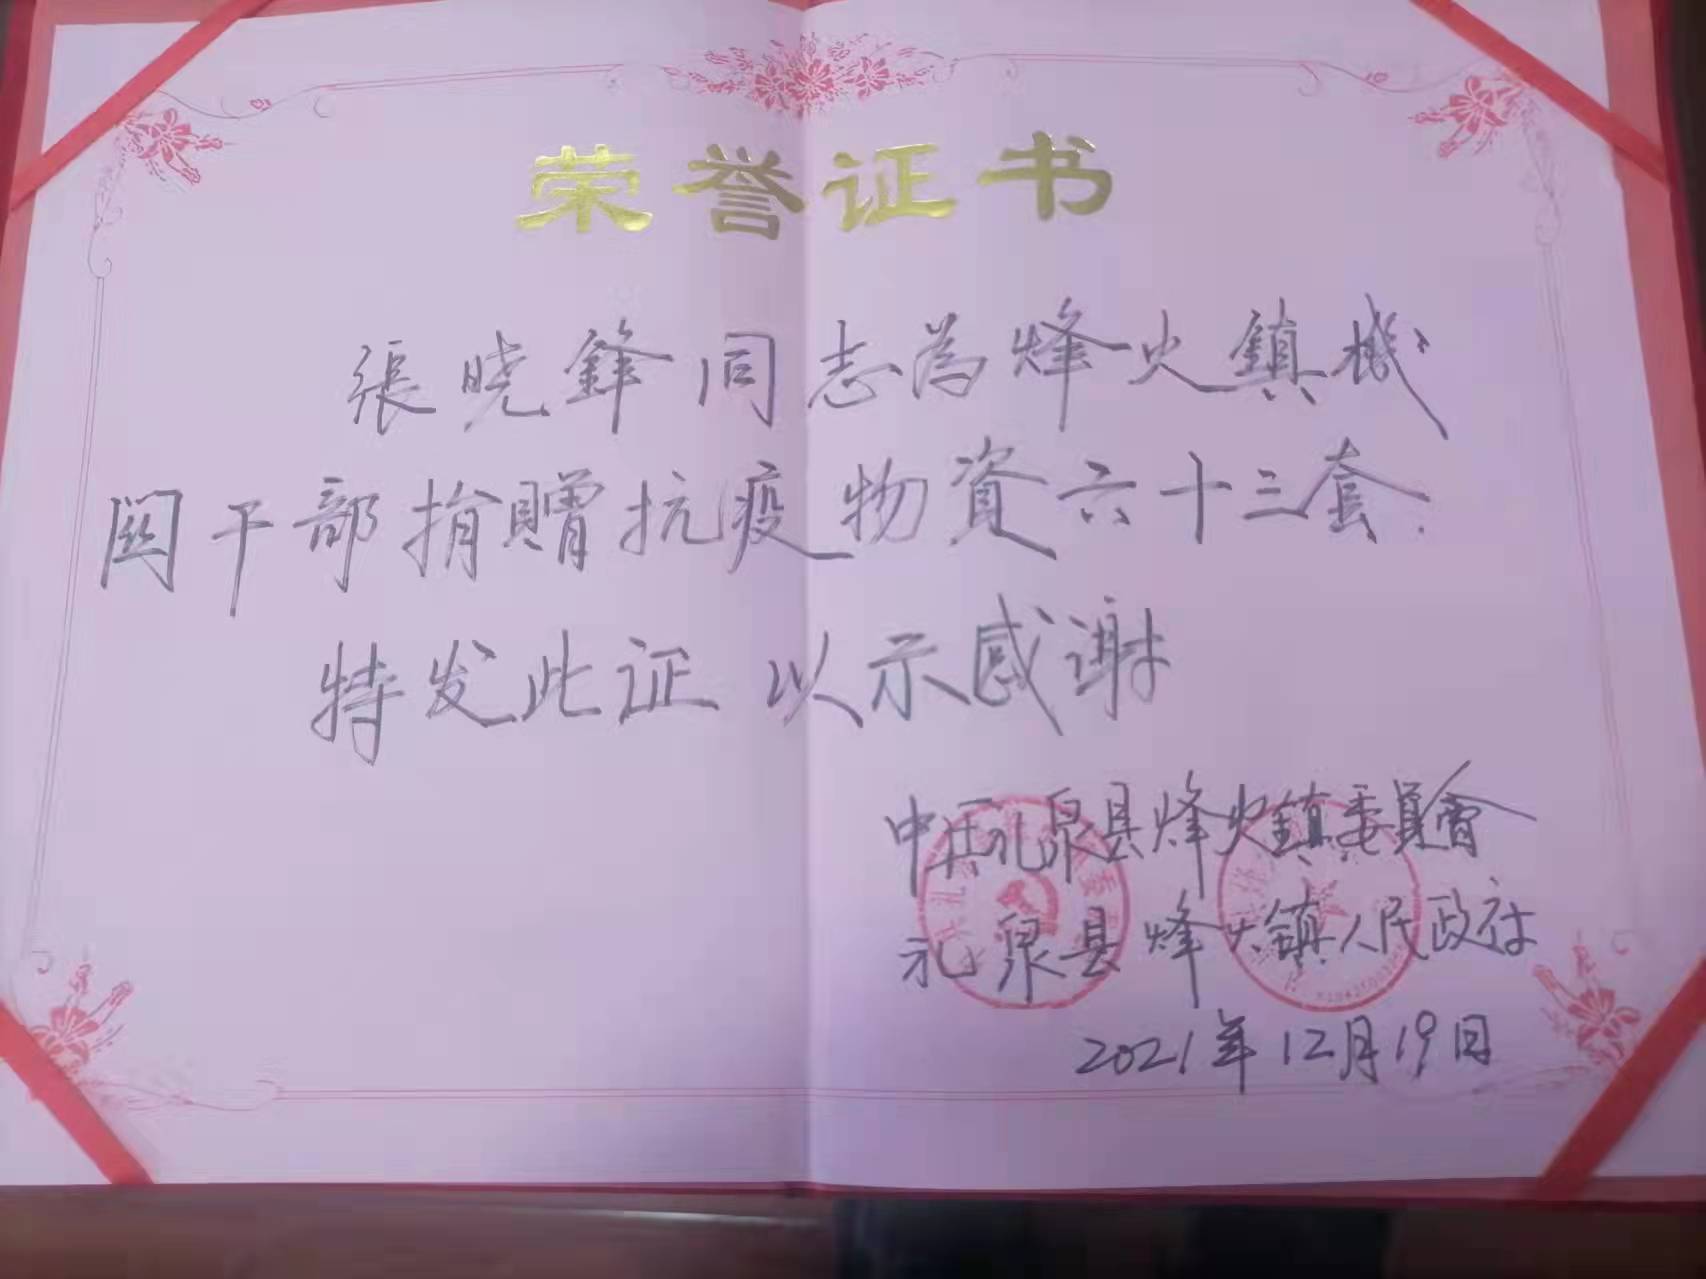 荣誉证书
張晓鋒同志為烽火鎮機
関干部捐贈抗疫物資六十三套.
特发此证 以示感谢
中共礼泉县烽火鎮委員會
礼泉县烽火鎮人民政府
2021年12月19日